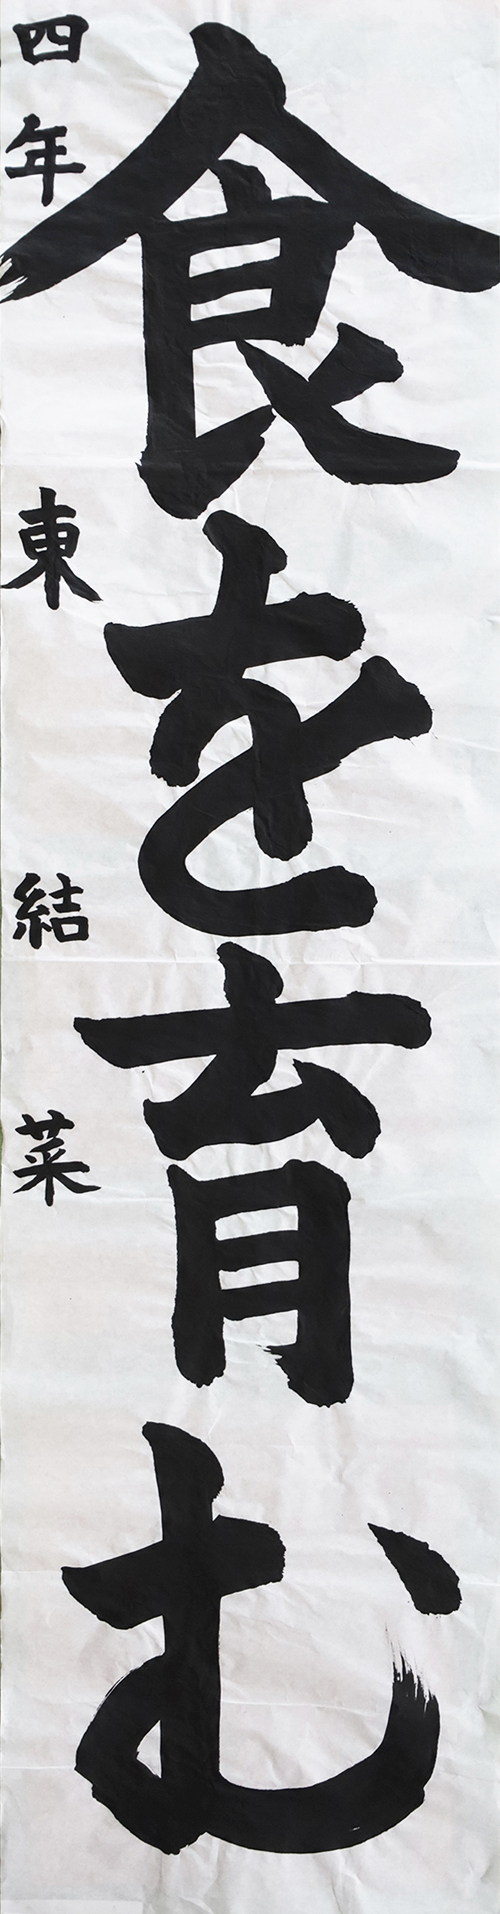 食を育む
四年 東 結菜